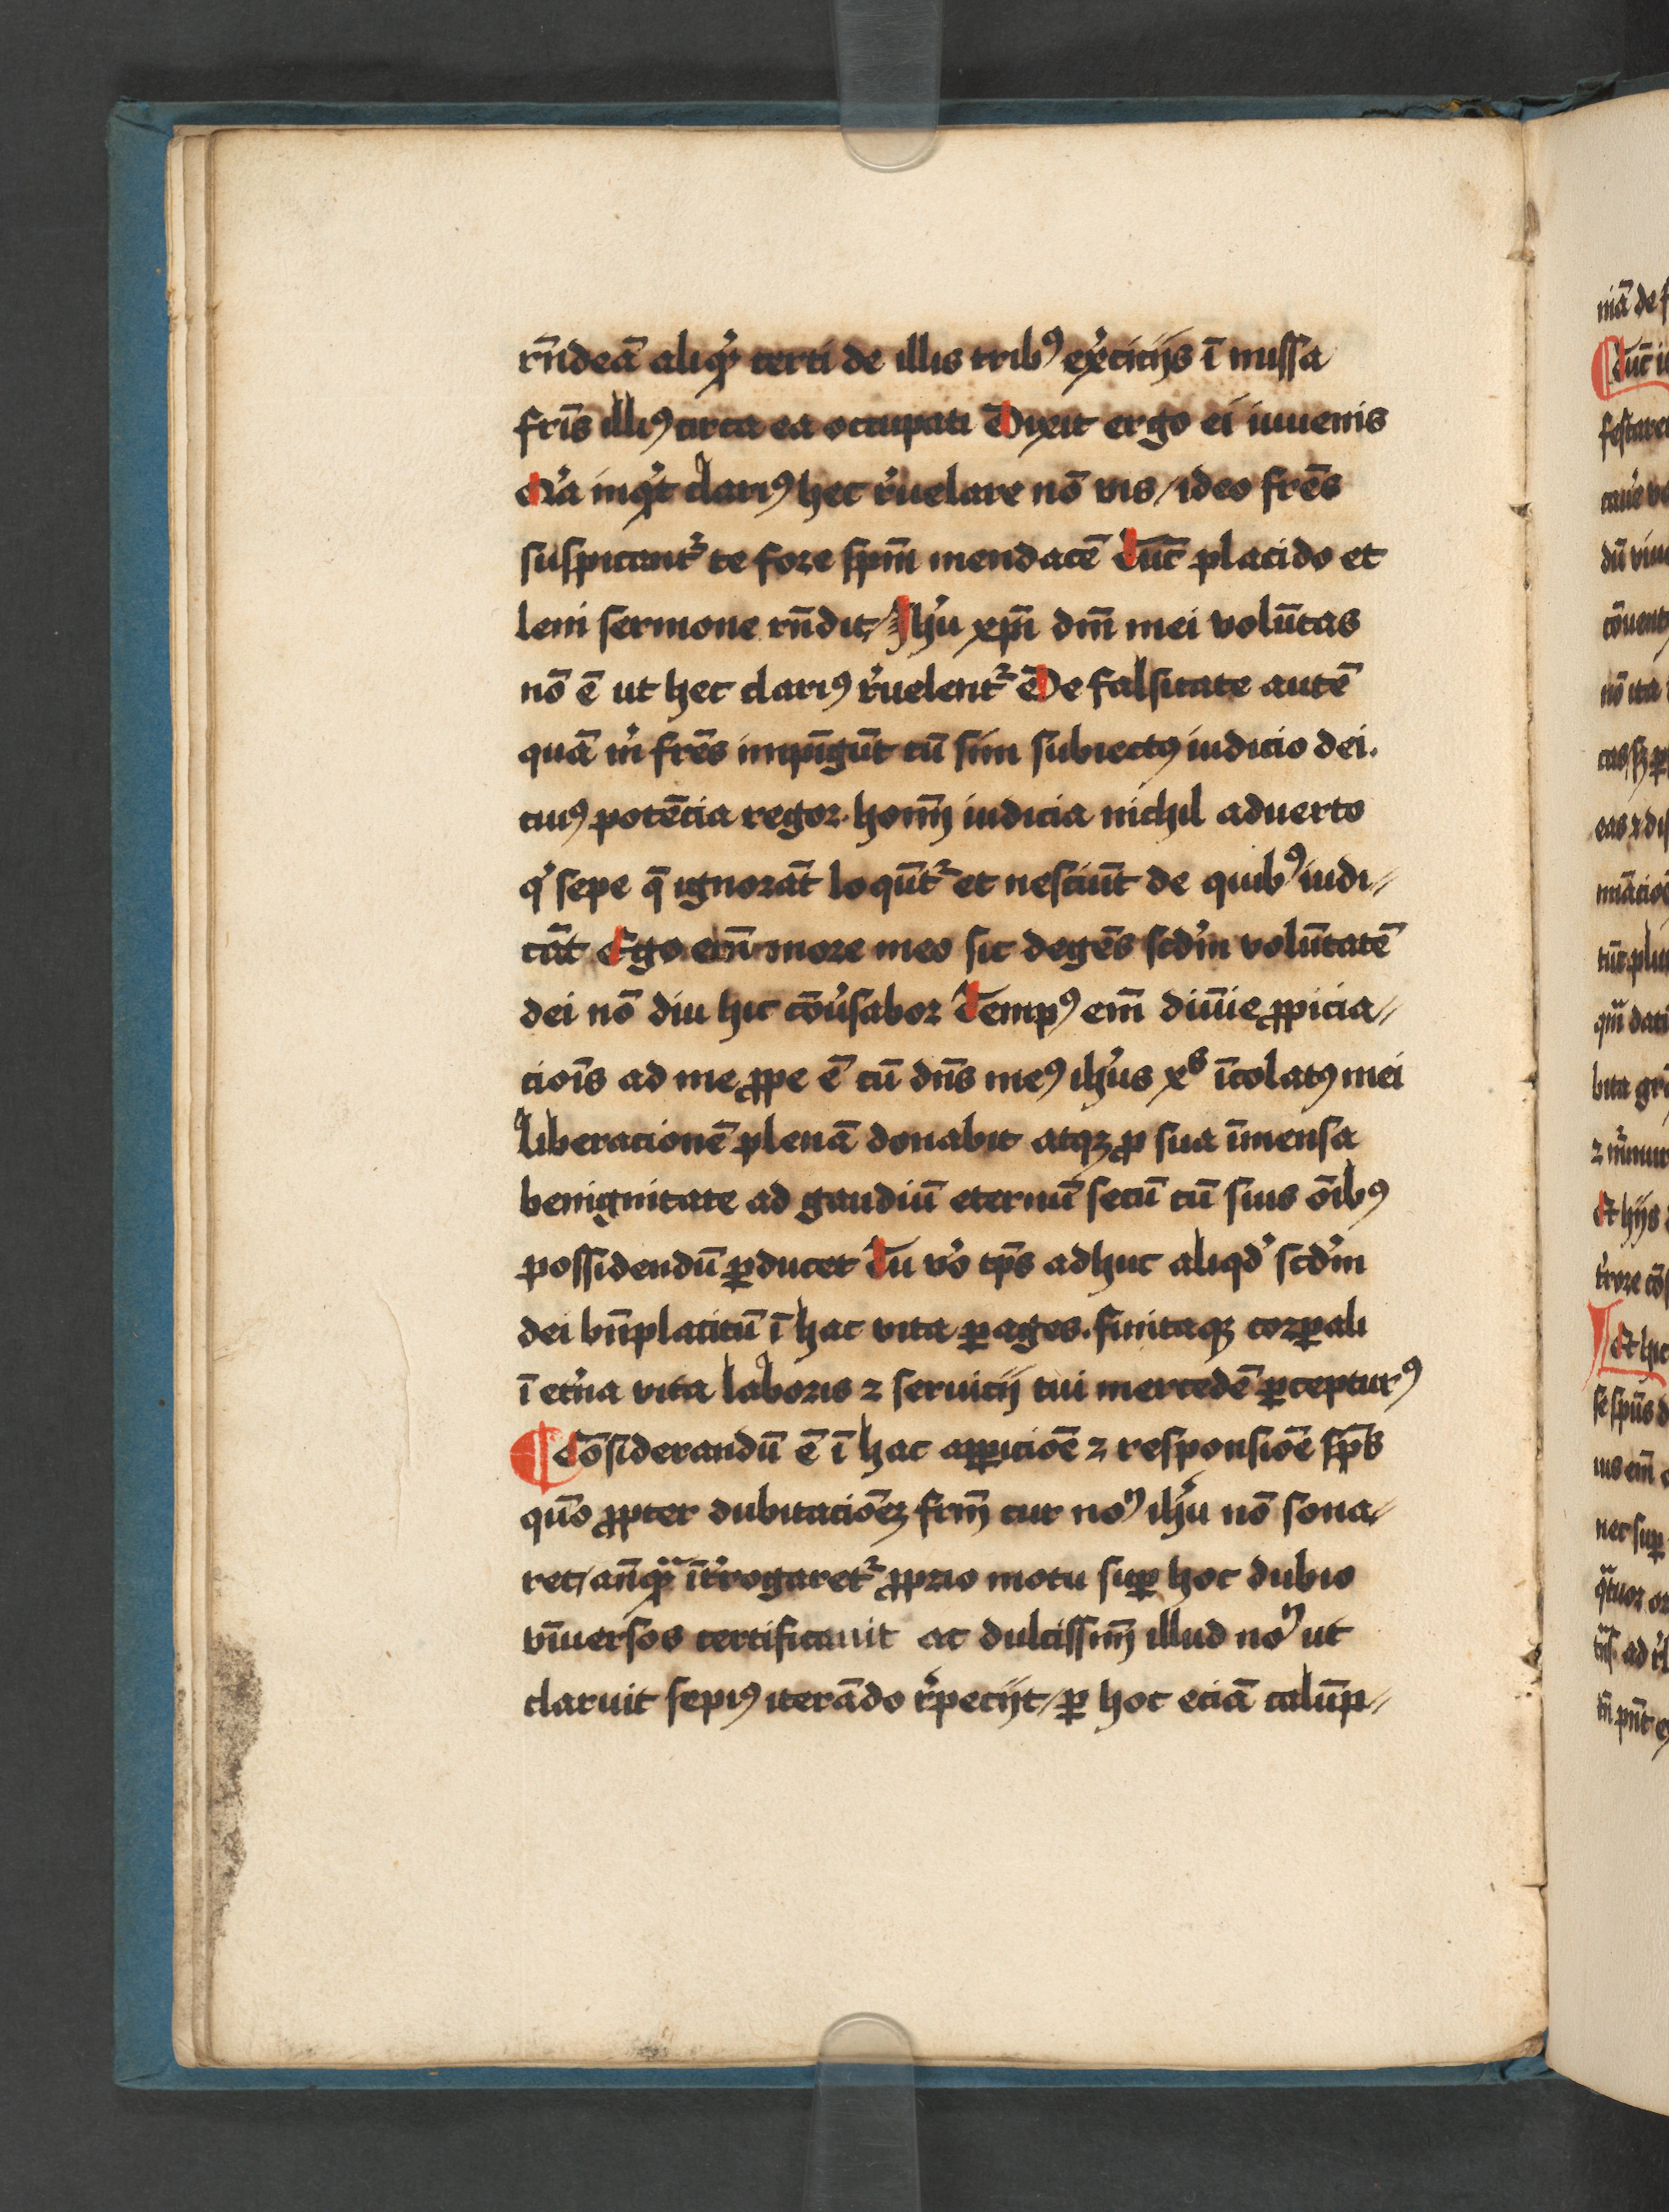 rn̄deā aliqͥ certi de illis tribꝯ ex̾cicijs ī missa
fr̄is illiꝯ circa ea occupati Dixit ergo ei iuuenis
inqͥt clariꝯ hec r̾uelare nō vis / ideo fr̄es
suspicantᷣ te fore sp̄m mendacē Tūc placido et
leni sermone rn̄dit / Ihū xp̄i dn̄i mei volūtas
nō ē ut hec clariꝯ r̾uelentᷣ De falsitate autē
quā m̾ fr̄es impīgūt cū sim subiectꝯ iudicio dei.
cuiꝯ potēcia regor. hoīm iudicia nichil aduerto
qͥ sepe q̄ ignorāt loqūtᷣ et nesciūt de quibꝯ iudi⸗
cāt Ego em̄ more meo sic degēs scd̾m volūtatē
dei nō diu hic cōu̾sabor Tempꝯ em̄ diuīe ꝓpicia⸗
ciōis ad me ꝓpe ē cū dn̄s meꝯ ih̾us xꝰ īcolatꝯ mei
liberacionē plenā donabit atqꝫ ꝓ sua īmensa
benignitate ad gaudiū eternū secū cū suis oībꝯ
possidendū ꝑducet Tu v̾o tp̄s adhuc aliqd̾ scd̾m
dei bn̄placitū ī hac vita ꝑages. finitaqꝫ corꝑali
ī et̾na vita laboris ⁊ seruicij tui mercedē ꝑcepturꝯ
¶ Cōsiderandū ē ī hac apꝑicioē ⁊ responsiōe sp̄s
quō ꝓpter dubitaciōeꝫ frm̄ cur noꝫ ih̾u nō sona⸗
ret / an̄qͣ īt̾rogaretᷣ ꝓprio motu suꝑ hoc dubio
vniuersos certificauit ac dulcissimū illud noꝫ ut
claruit sepiꝯ iterādo r̾pecijt / ꝑ hoc eciā calūp⸗